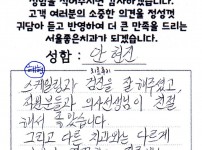 고객 여러분의 소중한 의견을 정성껏
귀담아 듣고 반영하여 더 큰 만족을 드리는
서울좋은치과가 되겠습니다.
성함 : 안현진
스케일링과 검진을 잘 해주셨고,
직원분들과 의사선생님이 친절
해서 좋았습니다.
그리고 다른 치과와는 다르게